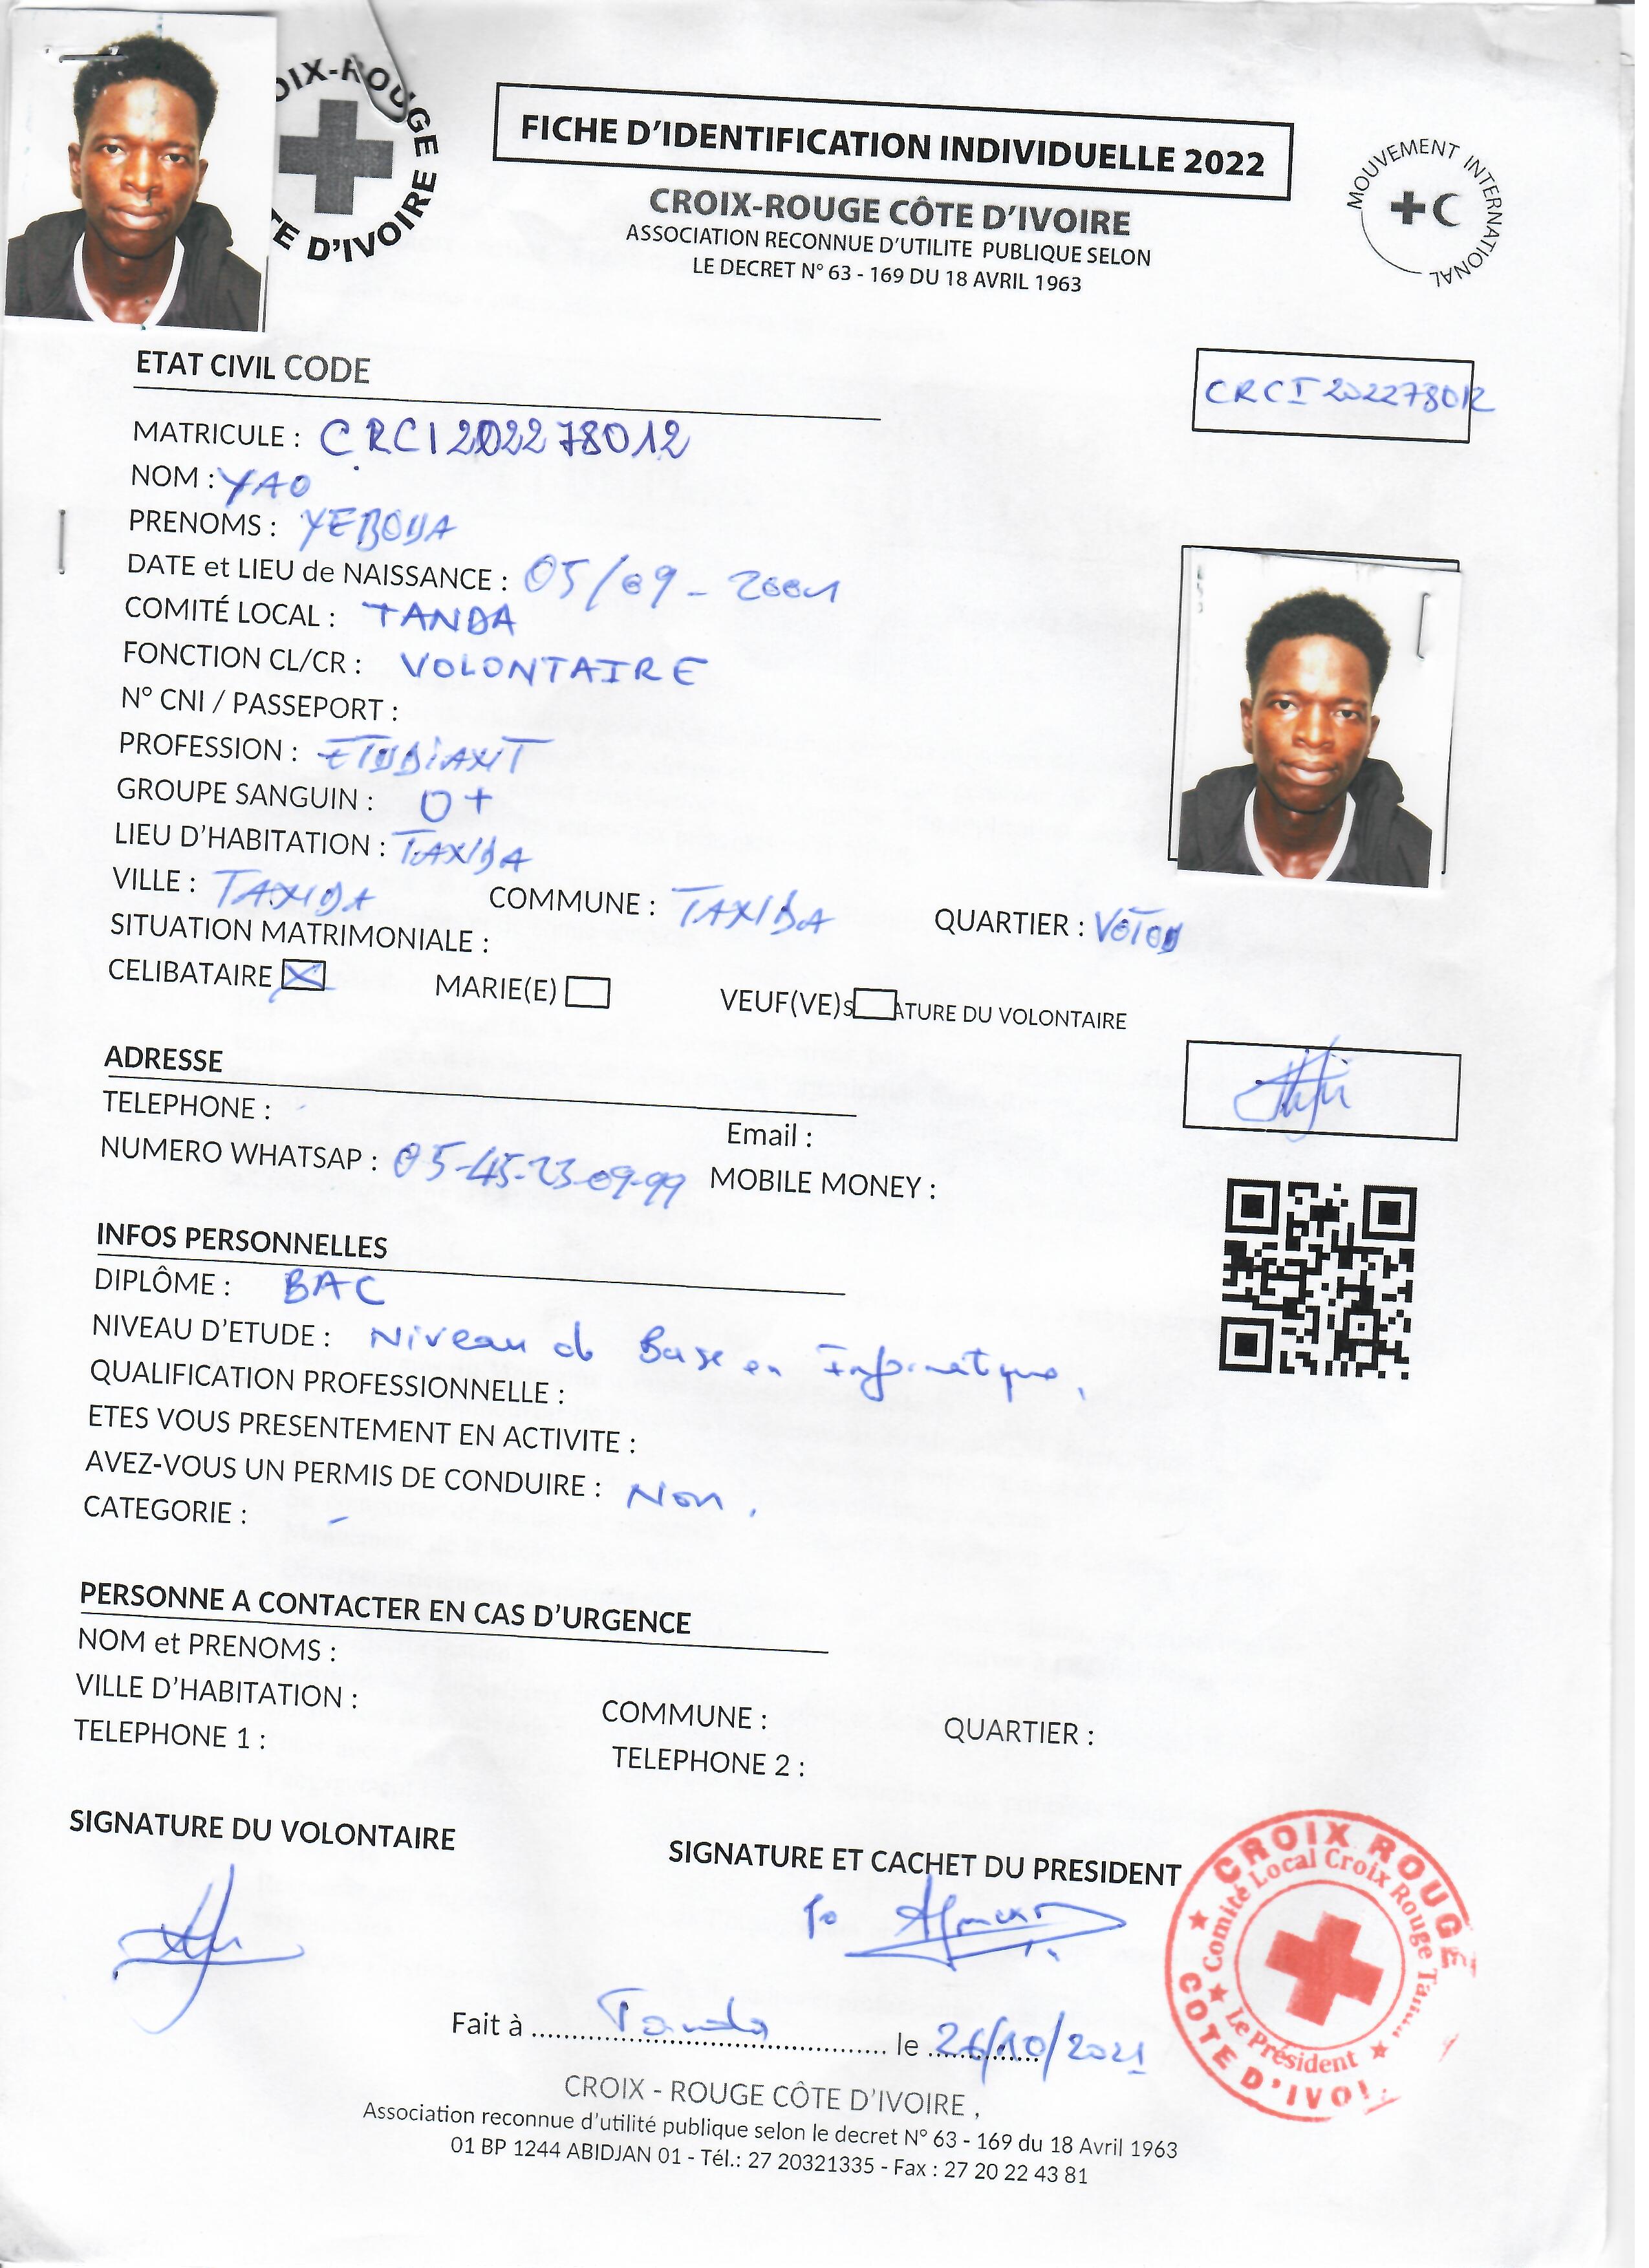 OIX-ROUGE
TE D'IVOIRE
FICHE D'IDENTIFICATION INDIVIDUELLE 2022
CROIX-ROUGE CÔTE D'IVOIRE
ASSOCIATION RECONNUE D'UTILITE PUBLIQUE SELON
LE DECRET N° 63 - 169 DU 18 AVRIL 1963
MOUVEMENT INTERNATIONAL
ETAT CIVIL CODE
CRCI202278012
MATRICULE : CRCI202278012
NOM : YAO
PRENOMS : YEBOUA
DATE et LIEU de NAISSANCE : 05/09-2001
COMITÉ LOCAL : TANDA
FONCTION CL/CR : VOLONTAIRE
N° CNI / PASSEPORT :
PROFESSION : ETUDIANT
GROUPE SANGUIN : O+
LIEU D'HABITATION : TANDA
VILLE : TANDA COMMUNE : TANDA QUARTIER :
SITUATION MATRIMONIALE :
CELIBATAIRE MARIE(E) VEUF(VE)S ATURE DU VOLONTAIRE
ADRESSE
TELEPHONE :
Email :
NUMERO WHATSAP : 05-45-23-09-99 MOBILE MONEY :
INFOS PERSONNELLES
DIPLÔME : BAC
NIVEAU D'ETUDE : Niveau de Base en Informatique,
QUALIFICATION PROFESSIONNELLE :
ETES VOUS PRESENTEMENT EN ACTIVITE :
AVEZ-VOUS UN PERMIS DE CONDUIRE : Non.
CATEGORIE : -
PERSONNE A CONTACTER EN CAS D'URGENCE
NOM et PRENOMS :
VILLE D'HABITATION : COMMUNE : QUARTIER :
TELEPHONE 1 : TELEPHONE 2 :
SIGNATURE DU VOLONTAIRE
SIGNATURE ET CACHET DU PRESIDENT
CROIX ROUGE
Comité Local Croix Rouge
Le Président
COTE D'IVOI
Fait à Tanda le 26/10/2021
CROIX - ROUGE CÔTE D'IVOIRE ,
Association reconnue d'utilité publique selon le decret N° 63 - 169 du 18 Avril 1963
01 BP 1244 ABIDJAN 01 - Tél.: 27 20321335 - Fax : 27 20 22 43 81